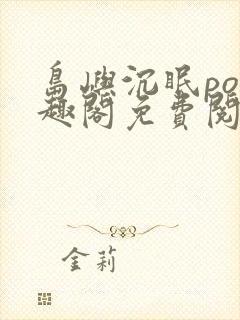 島嶼沉眠po
趣閣免費閱
金莉